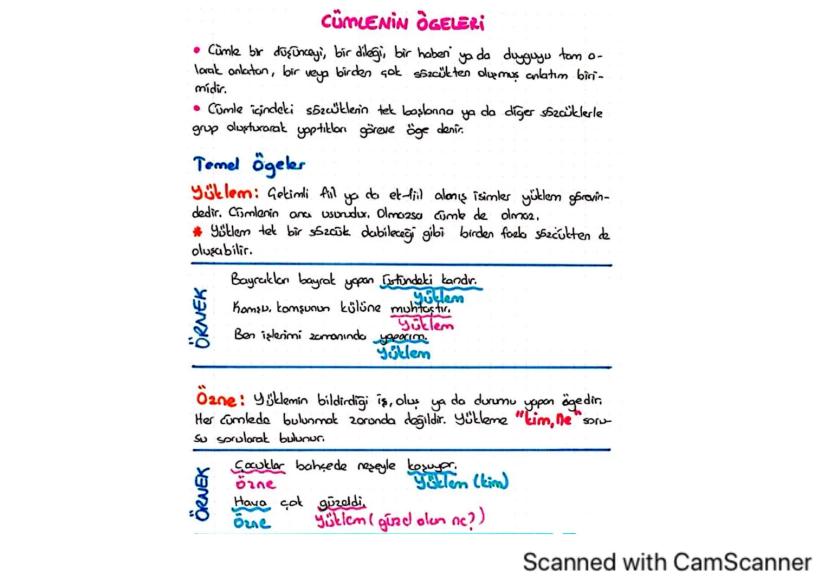 CÜMLENİN ÖGELERİ
• Cümle bir düşünceyi, bir dileği, bir haberi ya da duyguyu tam o-
larak anlatan, bir veya birden çok sözcükten oluşmuş anlatım biri-
midir.
• Cümle içindeki sözcüklerin tek başlarına ya da diğer sözcüklerle
grup oluşturarak yaptıkları göreve öge denir.
Temel Ögeler
Yüklem: Çekimli fiil ya da ek-fiil almış isimler yüklem görevin-
dedir. Cümlenin ana unsurudur. Olmazsa cümle de olmaz.
* Yüklem tek bir sözcük olabileceği gibi birden fazla sözcükten de
oluşabilir.
ÖRNEK
Bayrakları bayrak yapan üstündeki kandır.
Yüklem
Komşu, komşunun külüne muhtaçtır.
Yüklem
Ben işlerimi zamanında yaparım.
Yüklem
Özne: Yüklemin bildirdiği iş, oluş ya da durumu yapan ögedir.
Her cümlede bulunmak zorunda değildir. Yükleme "kim, Ne" soru-
su sorularak bulunur.
ÖRNEK
Çocuklar bahçede neşeyle koşuyor.
Özne Yüklem (kim)
Hava çok güzeldi.
Özne Yüklem (güzel olan ne?)
Scanned with CamScanner